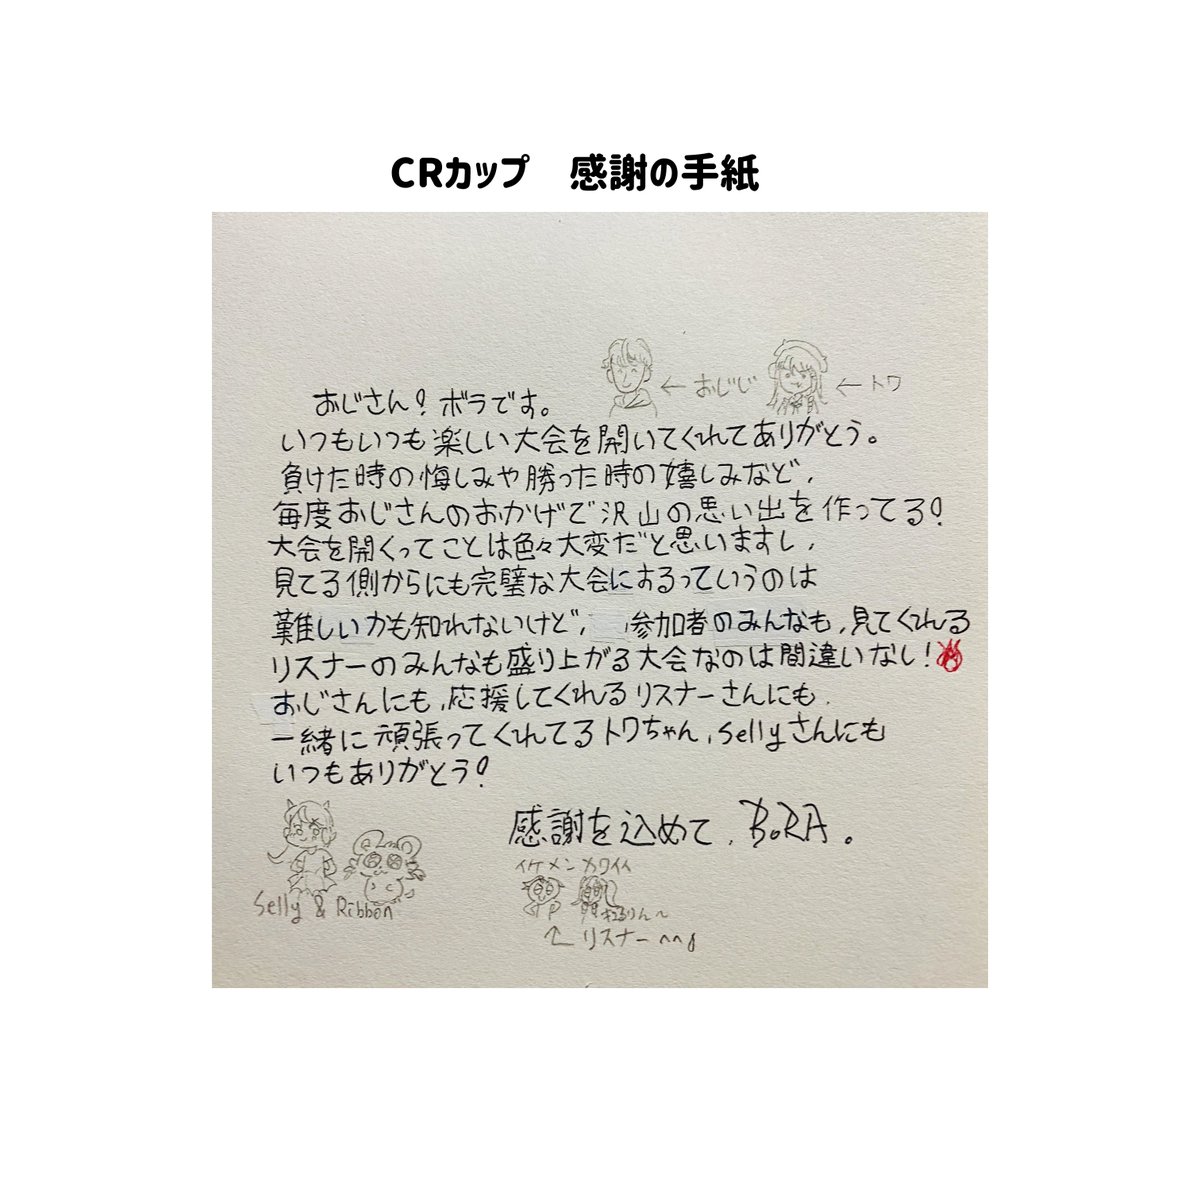 CRカップ　感謝の手紙
← おじじ
← トワ
おじさん！ボラです。
いつもいつも楽しい大会を開いてくれてありがとう。
負けた時の悔しみや勝った時の嬉しみなど、
毎度おじさんのおかげで沢山の思い出を作ってる！
大会を開くってことは色々大変だと思いますし、
見てる側からにも完璧な大会にするっていうのは
難しいかも知れないけど、参加者のみんなも、見てくれる
リスナーのみんなも盛り上がる大会なのは間違いなし！
おじさんにも、応援してくれるリスナーさんにも、
一緒に頑張ってくれてるトワちゃん、Sellyさんにも
いつもありがとう！
感謝を込めて、BoRA。
イケメン カワイイ
Selly & Ribbon
↑ リスナー